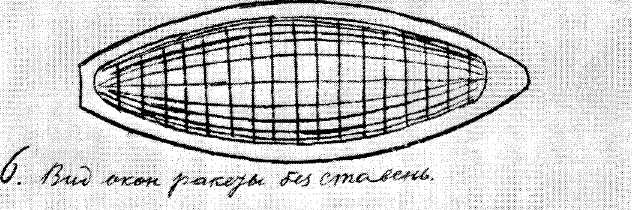 6. Вид окон ракеты без ставень.